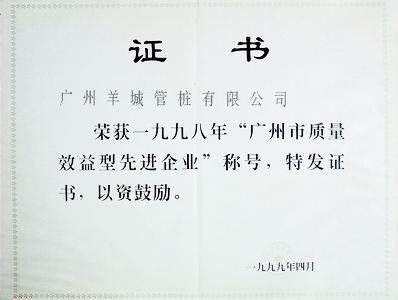 证书
广州羊城管桩有限公司
荣获一九九八年“广州市质量
效益型先进企业”称号，特发证
书，以资鼓励。
一九九九年四月